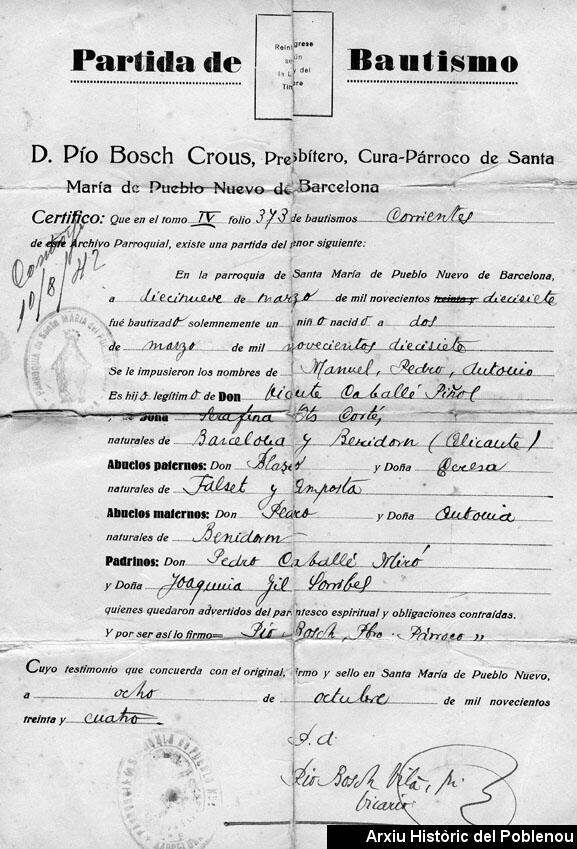 Partida de Bautismo
Reintégrese
según
la Ley del
Timbre
D. Pío Bosch Crous, Presbítero, Cura-Párroco de Santa
María de Pueblo Nuevo de Barcelona
Certifico: Que en el tomo IV folio 373 de bautismos Corrientes
de este Archivo Parroquial, existe una partida del tenor siguiente:
10/8/42
En la parroquia de Santa María de Pueblo Nuevo de Barcelona,
a diecinueve de marzo de mil novecientos treinta y diecisiete
fué bautizado solemnemente un niño nacido a dos
de marzo de mil novecientos diecisiete
Se le impusieron los nombres de Manuel, Pedro, Antonio
Es hijo legítimo de Don Vicente Caballé Piñol
y Doña Serafina Orts Cortés,
naturales de Barcelona y Benidorm (Alicante)
Abuelos paternos: Don Blas y Doña Teresa
naturales de Falset y Amposta
Abuelos maternos: Don Pedro y Doña Antonia
naturales de Benidorm
Padrinos: Don Pedro Caballé Miró
y Doña Joaquina Gil
quienes quedaron advertidos del parentesco espiritual y obligaciones contraídas.
Y por ser así lo firmo= Pío Bosch, Pbro. Párroco „
Cuyo testimonio que concuerda con el original, firmo y sello en Santa María de Pueblo Nuevo,
a ocho de octubre de mil novecientos
treinta y cuatro.
Pío Bosch Vilá,
Vicario
Arxiu Històric del Poblenou